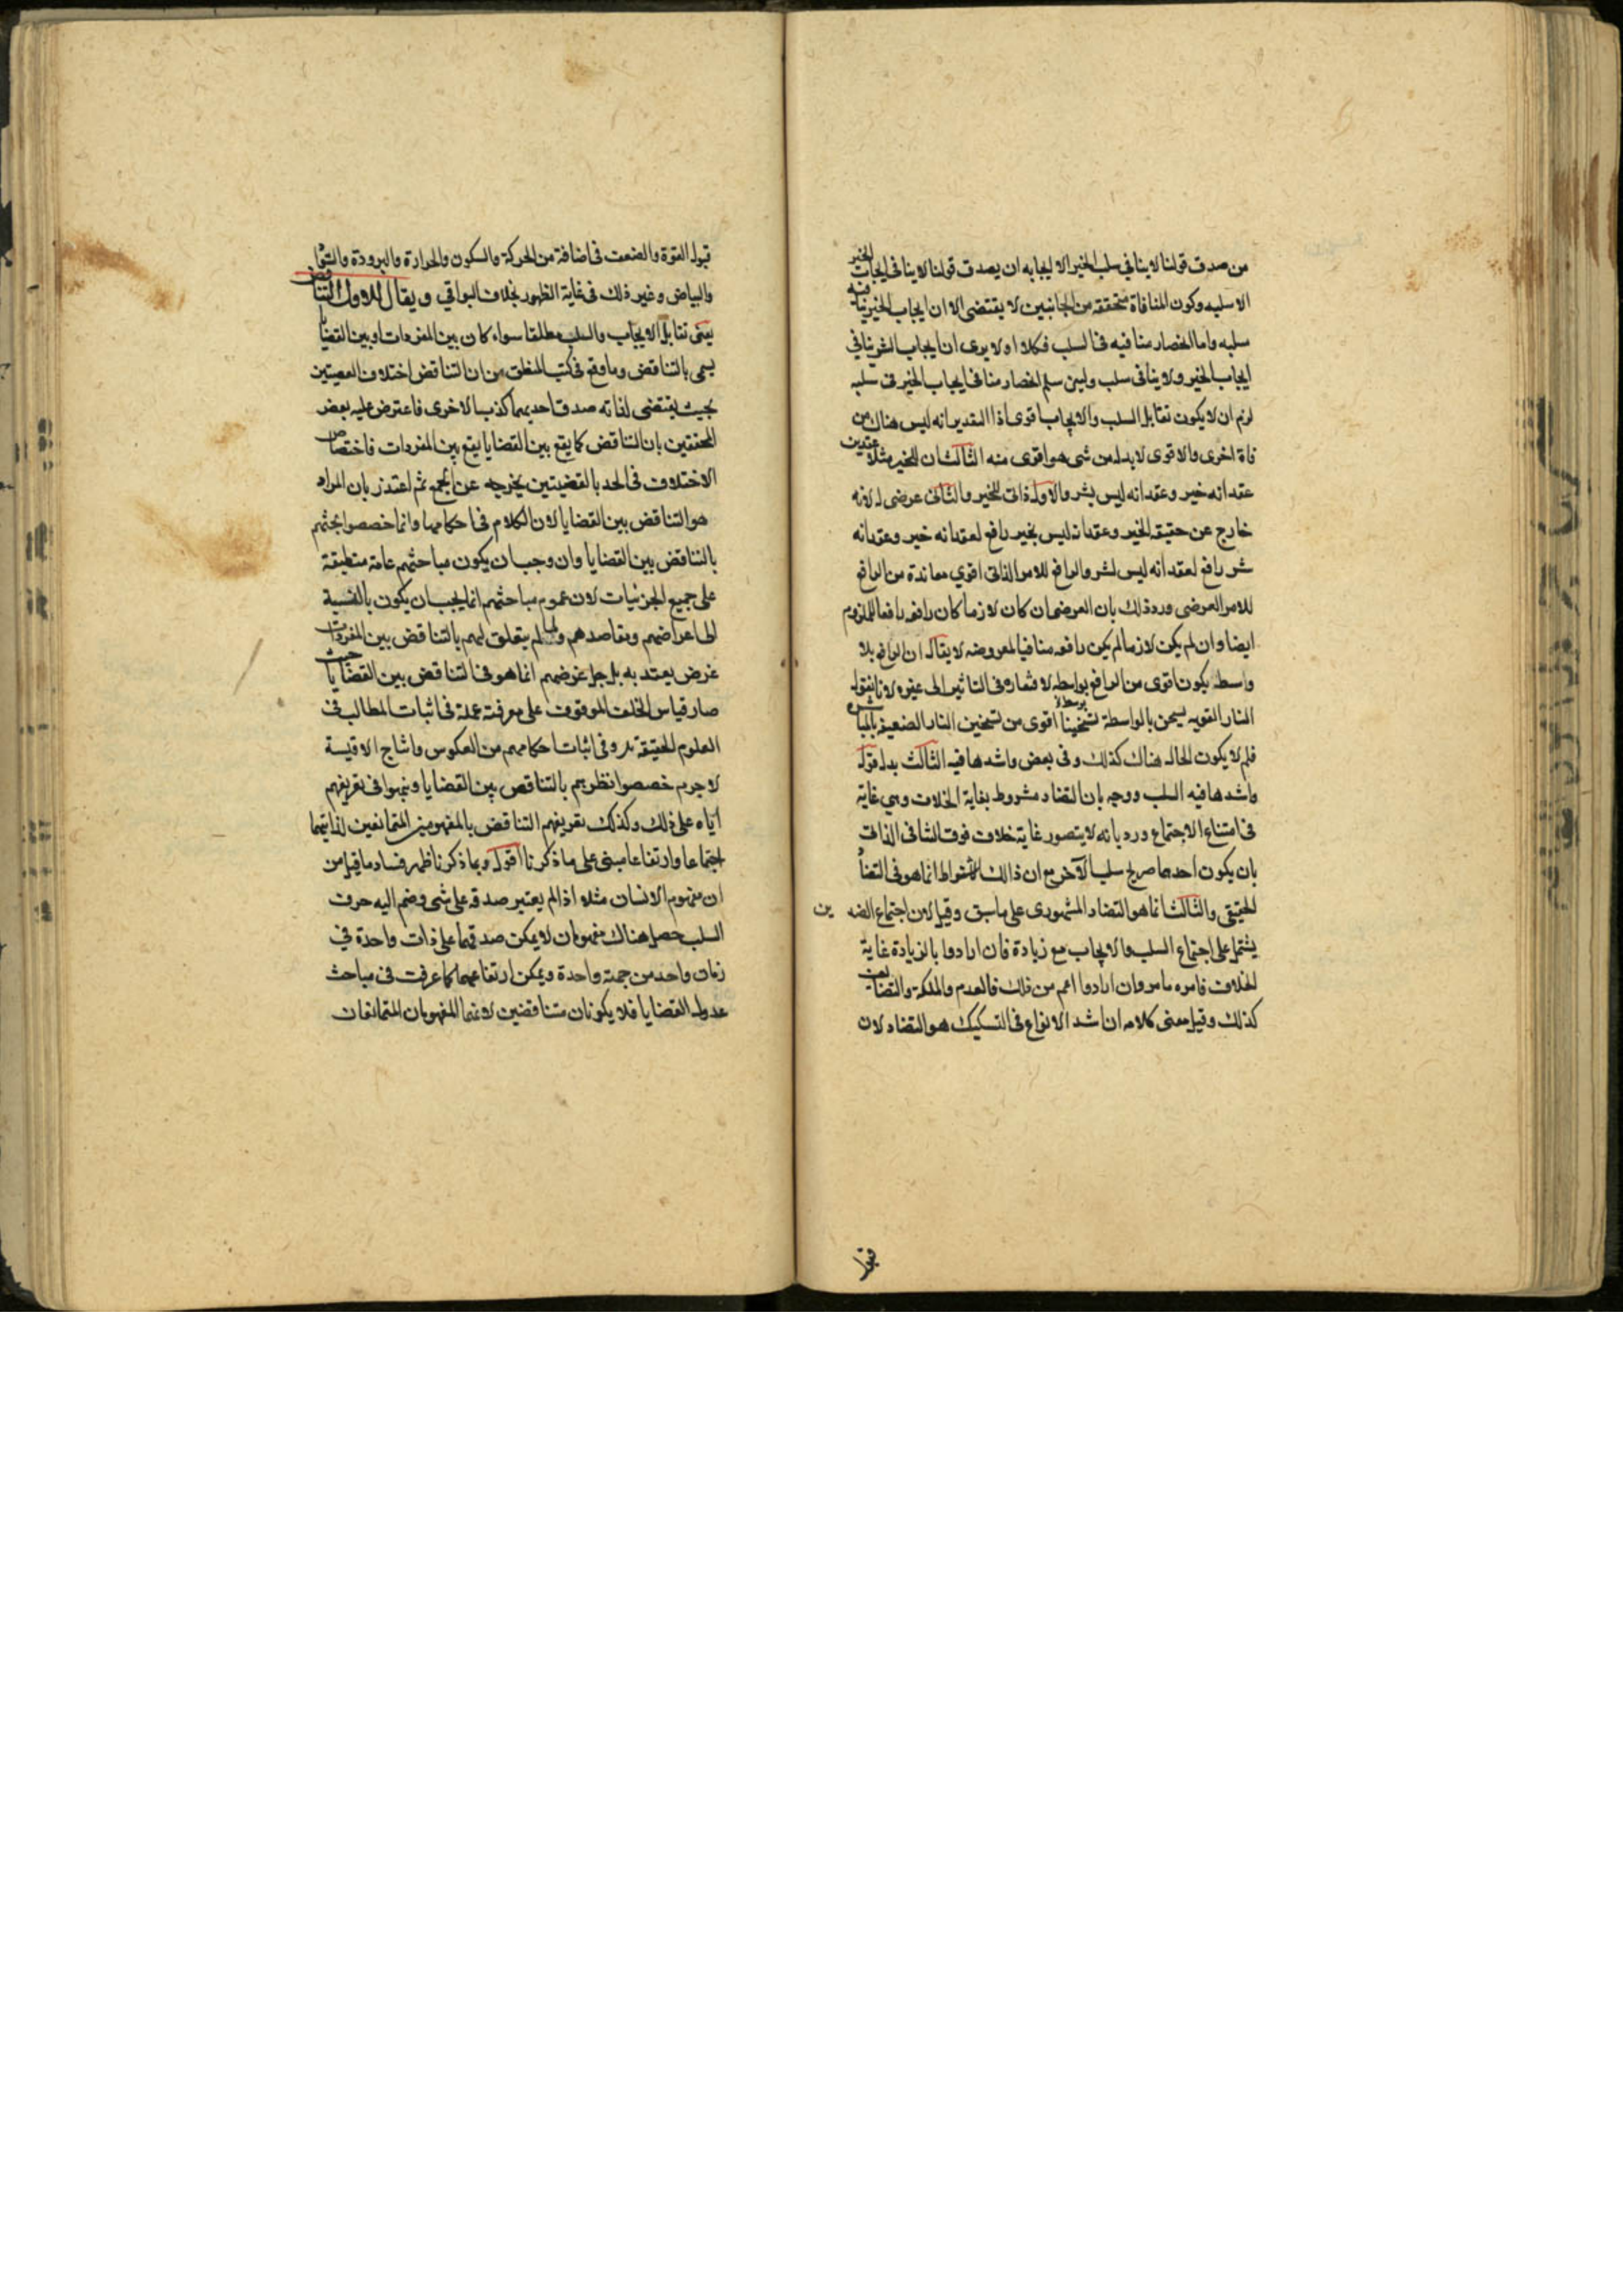 من صدق قولنا لا ينافي سلب الخير الا ايجابه ان يصدق قولنا لا ينافى ايجاب الخير
الا سلبه وكون المنافاة متحققة من الجانبين لا يقتضى الا ان ايجاب الخير ينافيه
سلبه واما انحصار منافيه فى السلب فكلا او لا يرى ان ايجاب الشر ينافي
ايجاب الخير ولا ينافى سلب ولين سلم انحصار منافى ايجاب الخير فى سلبه
لزم ان لا يكون تقابل السلب والايجاب اقوى اذ التقدير انه ليس هناك من
فاة اخرى والاقوى لا بد له من شى هو اقوى منه الثالث ان للخير مثلا عقدين
عقد انه خير وعقد انه ليس بشر والاول ذاتى للخير والثانى عرضى له لانه
خارج عن حقيقه الخير وعقد انه ليس بخير رافع لعقد انه خير وعقد انه
شر رافع لعقد انه ليس بشر والرافع للامر الذاتى اقوي معاندة من الرافع
للامر العرضى ورد ذلك بان العرضى ان كان لازما كان رافعه رافعا للملزوم
ايضا وان لم يكن لازما لم يكن رافعه منافيا لمعروضه لا يقال ان الرافع بلا
واسطه يكون اقوى من الرافع بواسطه لافتقاره فى التاثير الى غيره لانا نقول
النار القويه يسخن بالواسطة تسخينا اقوى من تسخين النار الضعيفه بالمباشره
فلم لا يكون الحال هناك كذلك وفى بعض واشدها فيه الثالث بدل قوله
واشدها فيه السلب ووجه بان التضاد مشروط بغاية الخلاف وهى غاية
فى امتناع الاجتماع ورد بانه لا يتصور غاية خلاف فوق التنافى الذاتى
بان يكون احدهما صريح سلب الآخر مع ان ذالك الاشتراط انما هو فى التضاد
الحقيقى والثالث انما هو التضاد المشهورى على ما سبق وقيل لان اجتماع الضدين
يشتمل على اجتماع السلب والايجاب مع زيادة فان ارادوا بالزيادة غاية
الخلاف فامره ما مر وان ارادوا اعم من ذلك فالعدم والملكة والتضايف
كذلك وقيل معنى كلامه ان اشد الانواع فى التشكيك هو التضاد لان
قبول
قبول القوة والضعف فى اضافة من الحركة والسكون والحرارة والبرودة والسواد
والبياض وغير ذلك فى غاية الظهور بخلاف البواقي ويقال للاول التناقض
يعنى تقابل الايجاب والسلب مطلقا سواء كان بين المفردات او بين القضايا
يسمى بالتناقض وما وقع فى كتب المنطق من ان التناقض اختلاف القضيتين
بحيث يقتضى لذاته صدق احديهما كذب الاخرى فاعترض عليه بعض
المحققين بان التناقض كما يقع بين القضايا يقع بين المفردات فاختصاص
الاختلاف فى الحد بالقضيتين يخرجه عن الجمع ثم اعتذر بان المراد
هو التناقض بين القضايا لان الكلام فى احكامها وانما خصصوا بحثهم
بالتناقض بين القضايا وان وجب ان يكون مباحثهم عامة منطبقة
على جميع الجزئيات لان عموم مباحثهم انما يجب ان يكون بالنسبة
الى اغراضهم ومقاصدهم ولما لم يتعلق لهم بالتناقض بين المفردات
غرض يعتد به بل جل غرضهم انما هو فى التناقض بين القضايا حيث
صار قياس الخلف الموقوف على معرفته عمدة فى اثبات المطالب فى
العلوم الحقيقة بل وفى اثبات احكامهم من العكوس وانتاج الاقيسة
لا جرم خصصوا نظرهم بالتناقض بين القضايا ونبهوا فى تعريفهم
اياه على ذلك وكذلك تعريفهم التناقض بالمفهومين المتمانعين لذاتيهما
اجتماعا وارتفاعا مبنى على ما ذكرنا اقول وبما ذكرنا ظهر فساد ما قيل من
ان مفهوم الانسان مثلا اذا لم يعتبر صدقه على شى وضم اليه حرف
السلب حصل هناك مفهومان لا يمكن صدقهما على ذات واحدة في
زمان واحد من جهة واحدة ويمكن ارتفاعهما كما عرفت فى مباحث
عدول القضايا فلا يكونان متناقضين لانهما المفهومان المتمانعان